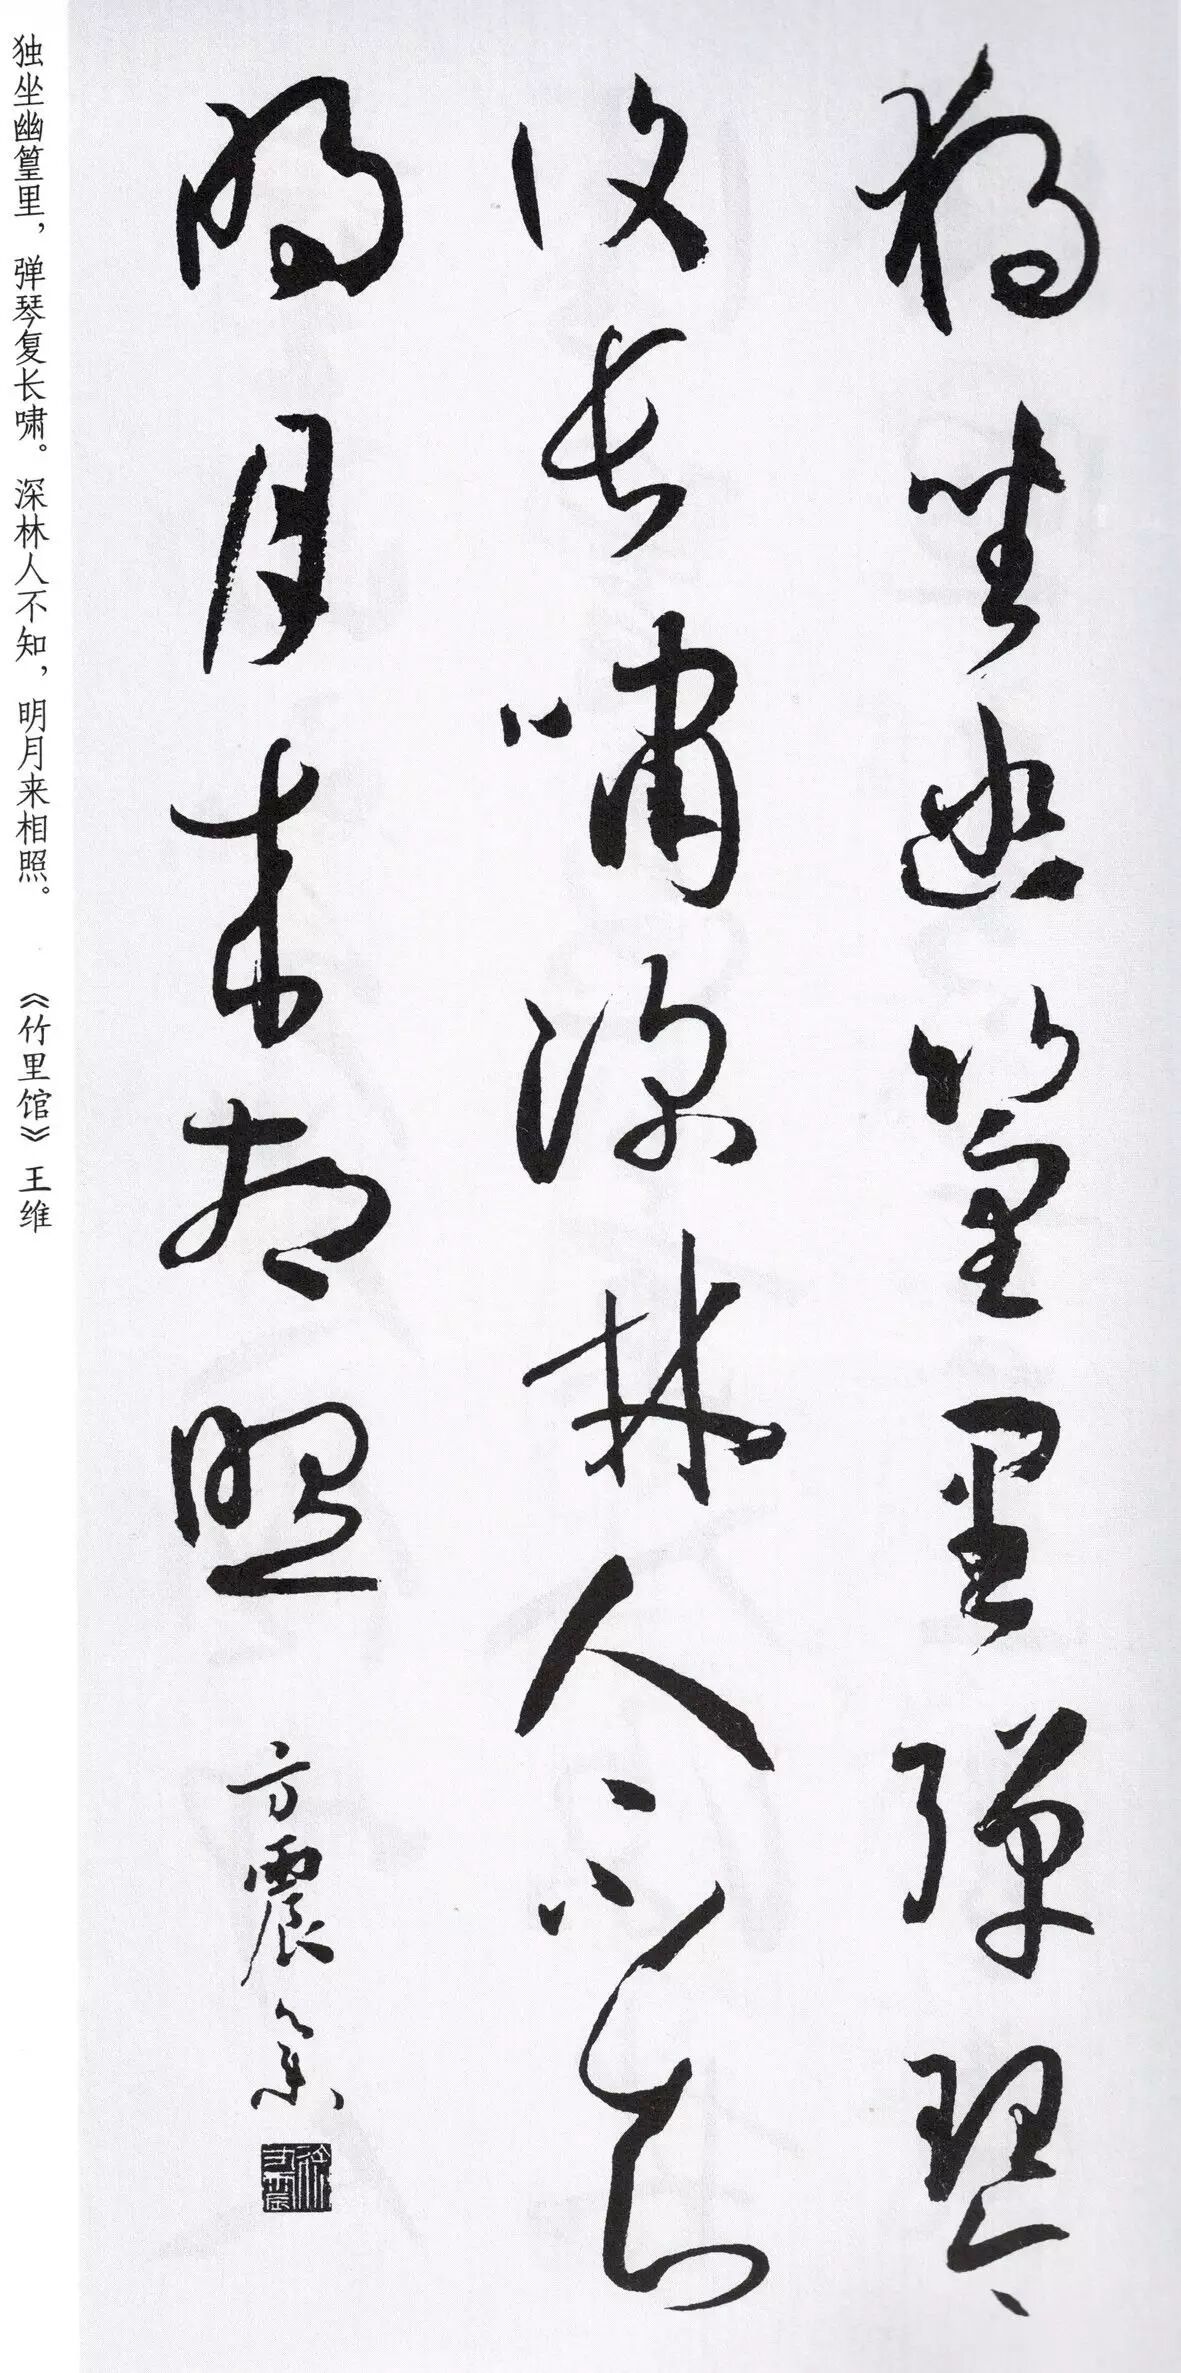 獨坐幽篁里彈琴
復長嘯深林人不知
明月來相照
方震筆
独坐幽篁里，弹琴复长啸。深林人不知，明月来相照。 《竹里馆》王维